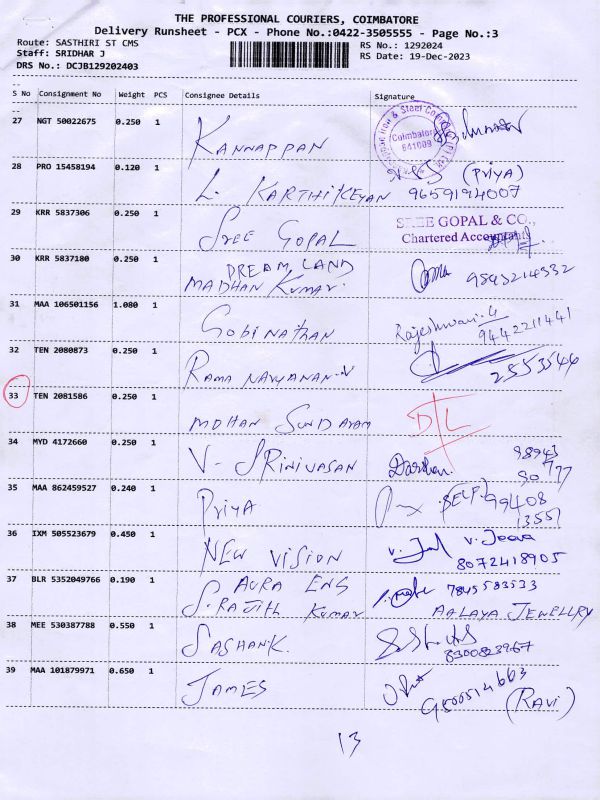 THE PROFESSIONAL COURIERS, COIMBATORE
Delivery Runsheet - PCX - Phone No.:0422-3505555 - Page No.:3
Route: SASTHIRI ST CMS
Staff: SRIDHAR J
DRS No.: DCJB129202403
RS No.: 1292024
RS Date: 19-Dec-2023
S No Consignment No Weight PCS Consignee Details Signature
27 NGT 50022675 0.250 1 KANNAPPAN
Coimbatore
641009
28 PRO 15458194 0.120 1 L. KARTHIKEYAN (Priya)
9659194007
29 KRR 5837306 0.250 1 SREE GOPAL
SREE GOPAL & CO.,
Chartered Accountants
30 KRR 5837180 0.250 1 DREAM LAND
MADHAN KUMAR. 9843214332
31 MAA 106501156 1.080 1 GOBINATHAN Rajeshwari.G
9442211441
32 TEN 2080873 0.250 1 RAMA NARYANAN.V 2553546
33 TEN 2081586 0.250 1 MOHAN SUNDARAM D/L
34 MYD 4172660 0.250 1 V- SRINIVASAN Darshan. 98943
50777
35 MAA 862459527 0.240 1 PRIYA (SELF) 99408
13551
36 IXM 505523679 0.450 1 NEW VISION V. Jeeva
8072418905
37 BLR 5352049766 0.190 1 AURA ENG
S. RAJITH KUMAR 7845583533
AALAYA JEWELLRY
38 MEE 530387788 0.550 1 SASHANK.
8300823967
39 MAA 101879971 0.650 1 JAMES 9500514663
(RAVI)
13